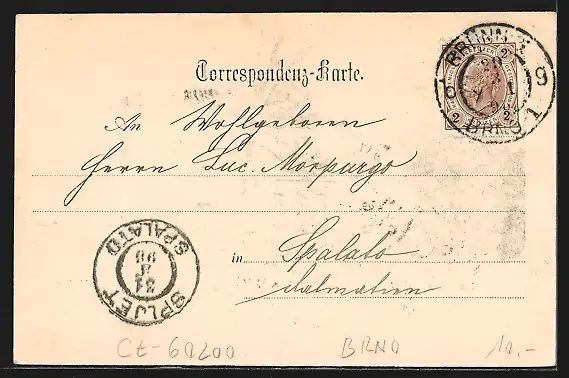 BRÜNN 1
BRNO 1
9
2 2
Correspondenz-Karte.
An Wohlgeboren
Herrn Luc. Morpurgo
in Spalato
Dalmatien
SPLJET
SPALATO
31
8
98
Ct-60200 BRNO 10.-